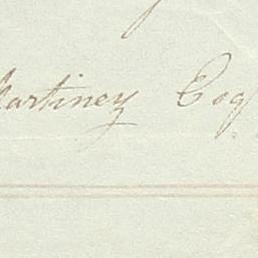 Martiney Esq